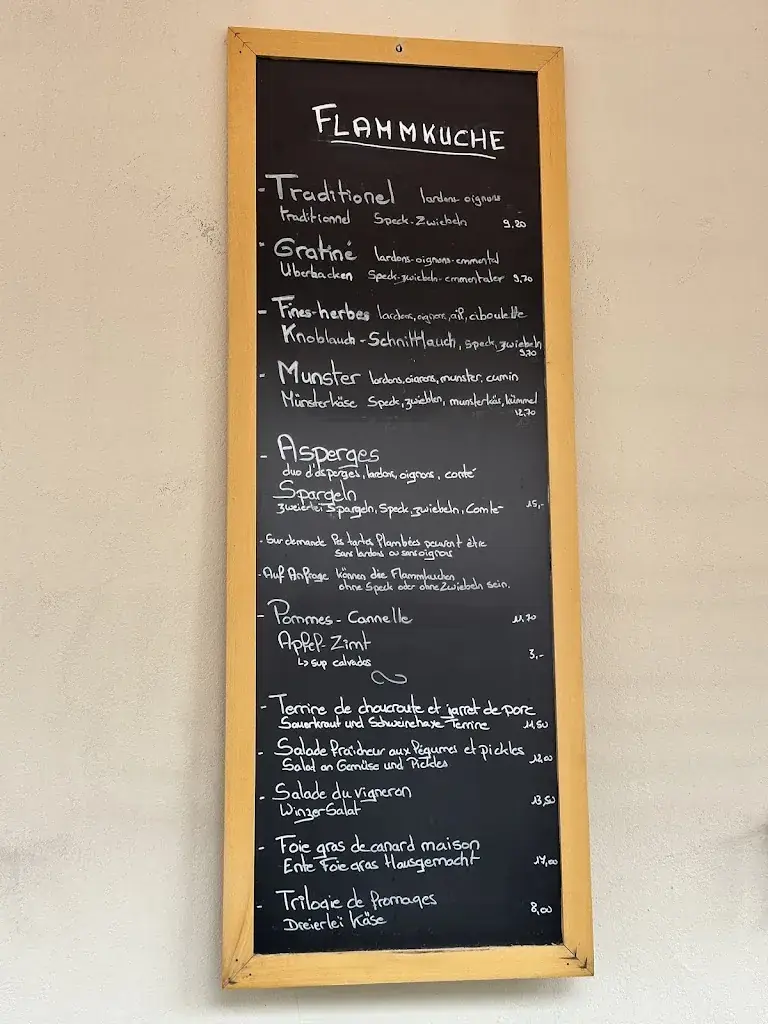 FLAMMKUCHE
- Traditionel lardons oignons
traditionnel Speck-Zwiebeln 9,20
- Gratiné lardons-oignons-emmental
Uberbacken Speck-zwiebeln-emmentaler 9,70
- Fines-herbes lardons, oignons, ail, ciboulette
Knoblauch-Schnittlauch, speck, zwiebeln
9,70
- Munster lardons, oignons, munster, cumin
Münsterkäse Speck, zwieblen, munsterkäs, kümmel
12,70
- Asperges
duo d'asperges, lardons, oignons, comté
Spargeln
zweierlei Spargeln, Speck, zwiebeln, Comte 15,-
- Sur demande les tartes flambées peuvent être
sans lardons ou sans oignons
- Auf Anfrage können die Flammkuchen
ohne Speck oder ohne Zwiebeln sein.
- Pommes-Cannelle 11,70
Apfel-Zimt
↳ sup calvados 3,-
- Terrine de choucroute et jarret de porc
Sauerkraut und Schweinehaxe Terrine 11,50
- Salade fraîcheur aux légumes et pickles
Salad an Gemüse und Pickles 12,00
- Salade du vigneron
Winzer Salat 13,50
- Foie gras de canard maison
Ente Foie gras Hausgemacht 17,00
- Trilogie de fromages
Dreierlei Käse 8,00